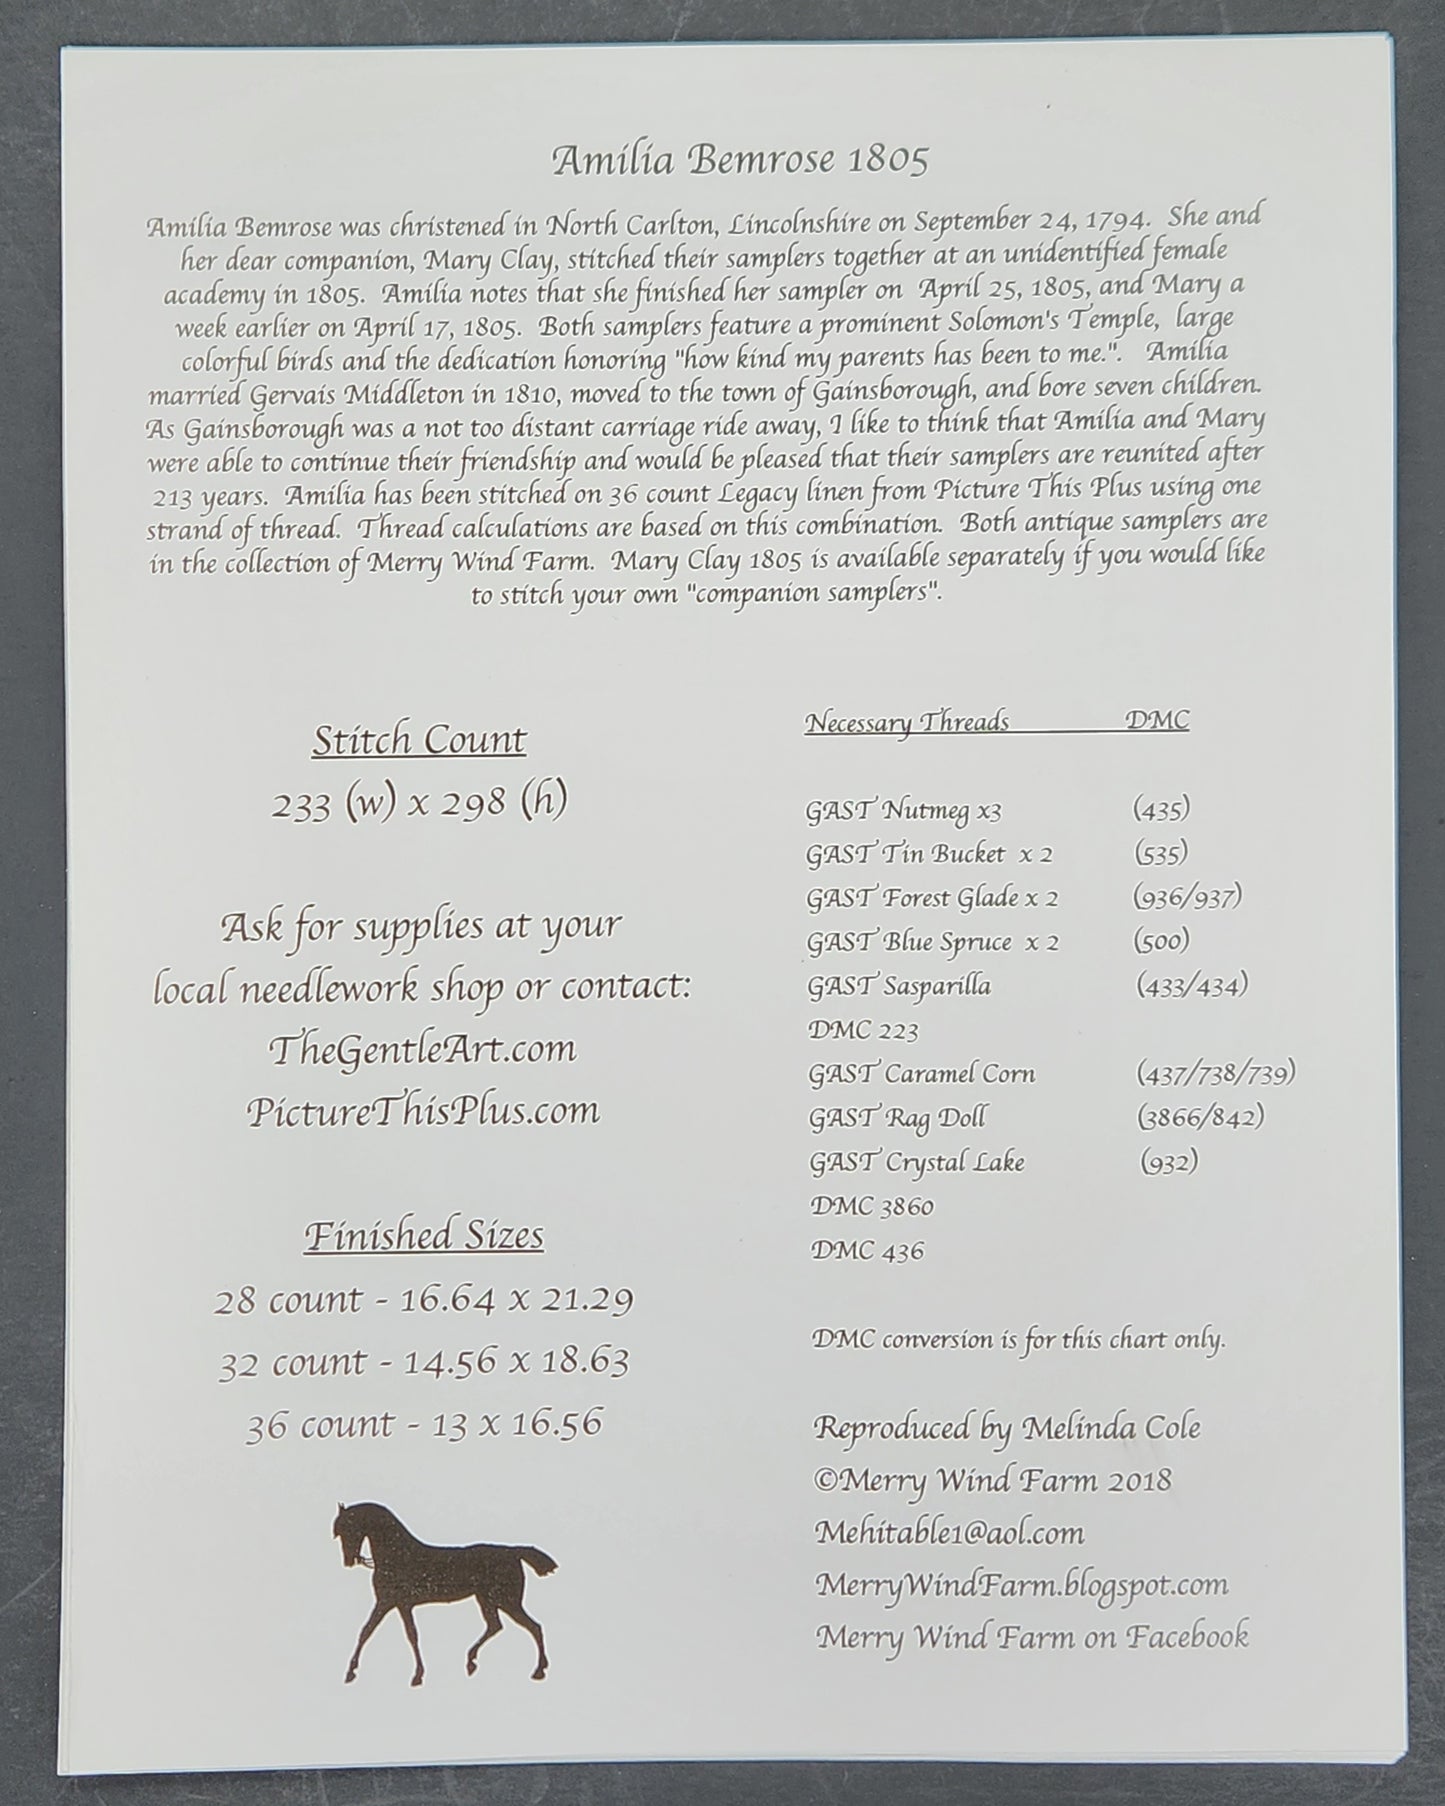 Amilia Bemrose 1805
Amilia Bemrose was christened in North Carlton, Lincolnshire on September 24, 1794. She and
her dear companion, Mary Clay, stitched their samplers together at an unidentified female
academy in 1805. Amilia notes that she finished her sampler on April 25, 1805, and Mary a
week earlier on April 17, 1805. Both samplers feature a prominent Solomon's Temple, large
colorful birds and the dedication honoring "how kind my parents has been to me.". Amilia
married Gervais Middleton in 1810, moved to the town of Gainsborough, and bore seven children.
As Gainsborough was a not too distant carriage ride away, I like to think that Amilia and Mary
were able to continue their friendship and would be pleased that their samplers are reunited after
213 years. Amilia has been stitched on 36 count Legacy linen from Picture This Plus using one
strand of thread. Thread calculations are based on this combination. Both antique samplers are
in the collection of Merry Wind Farm. Mary Clay 1805 is available separately if you would like
to stitch your own "companion samplers".
Stitch Count
233 (w) x 298 (h)
Ask for supplies at your
local needlework shop or contact:
TheGentleArt.com
PictureThisPlus.com
Finished Sizes
28 count - 16.64 x 21.29
32 count - 14.56 x 18.63
36 count - 13 x 16.56
Necessary Threads DMC
GAST Nutmeg x3 (435)
GAST Tin Bucket x 2 (535)
GAST Forest Glade x 2 (936/937)
GAST Blue Spruce x 2 (500)
GAST Sasparilla (433/434)
DMC 223
GAST Caramel Corn (437/738/739)
GAST Rag Doll (3866/842)
GAST Crystal Lake (932)
DMC 3860
DMC 436
DMC conversion is for this chart only.
Reproduced by Melinda Cole
©Merry Wind Farm 2018
Mehitable1@aol.com
MerryWindFarm.blogspot.com
Merry Wind Farm on Facebook